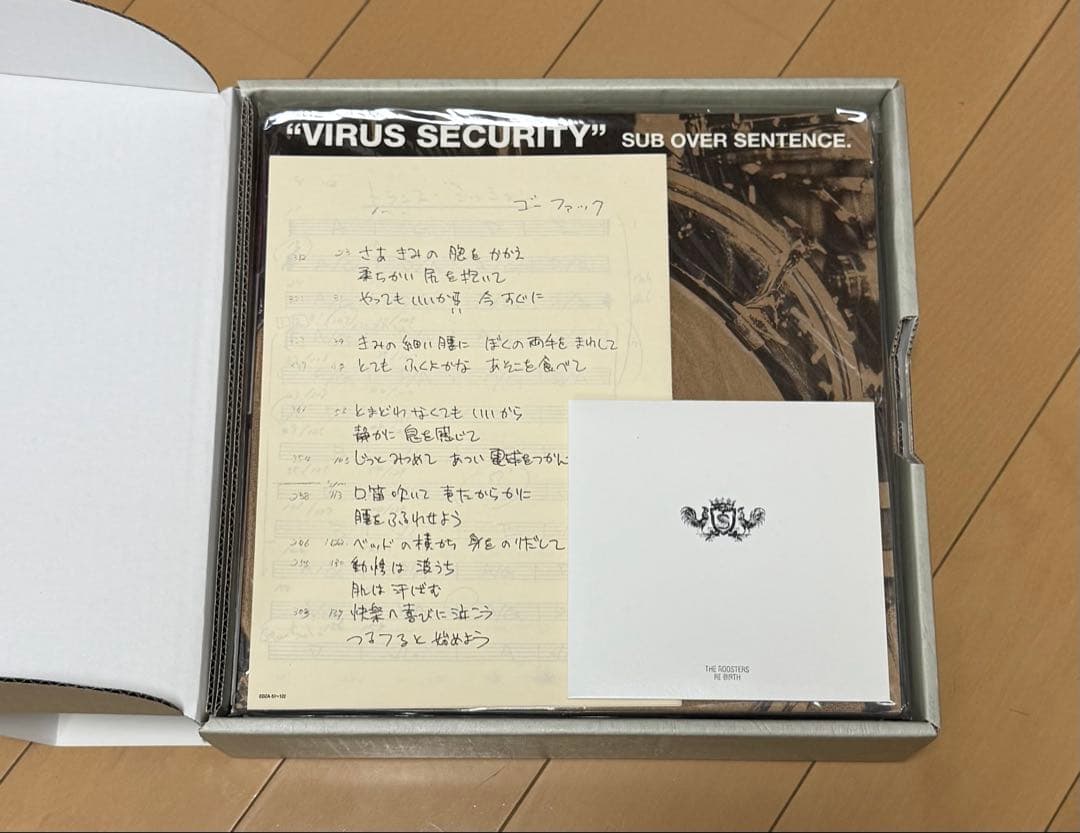 “VIRUS SECURITY” SUB OVER SENTENCE.
ゴー ファック
さあ きみの 胞を かかえ
柔らかい 尻を抱いて
やっても いいかい!! 今 すぐに
きみの 細い 腰に ぼくの 両手を まわして
とても ふくよかな あそこを 食べて
とまどわ なくても いいから
静かに 息を 感じて
じっと みつめて あつい 電球をつかん
口笛 吹いて 声たからかに
腰を ふるわせよう
ベッドの 横から 身を のりだして
動悸は 波うち
肌は 汗ばむ
快楽へ 喜びに 泣こう
つるつると 始めよう
THE ROOSTERS
RE·BIRTH